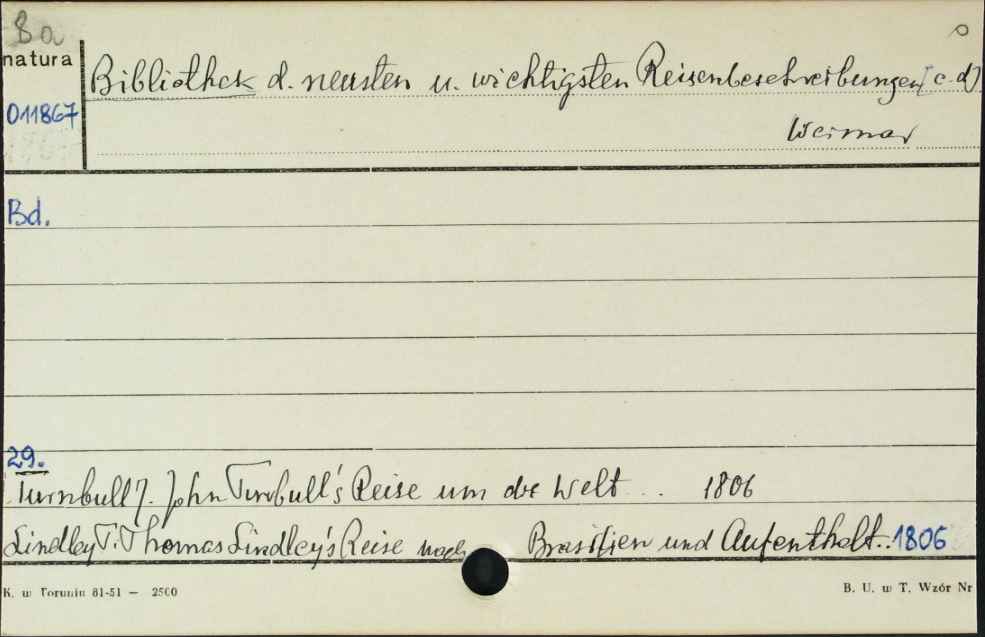 Ba
natura
011867
Bibliothek d. neusten u. wichtigsten Reisenbeschreibungen [c.d]
Weimar
Bd.
29.
Turnbull J. John Turnbull's Reise um die Welt ... 1806
Lindley T. Thomas Lindley's Reise nach Brasilien und Aufenthalt.. 1806
K. w Toruniu 81-51 — 2500
B. U. w T. Wzór Nr